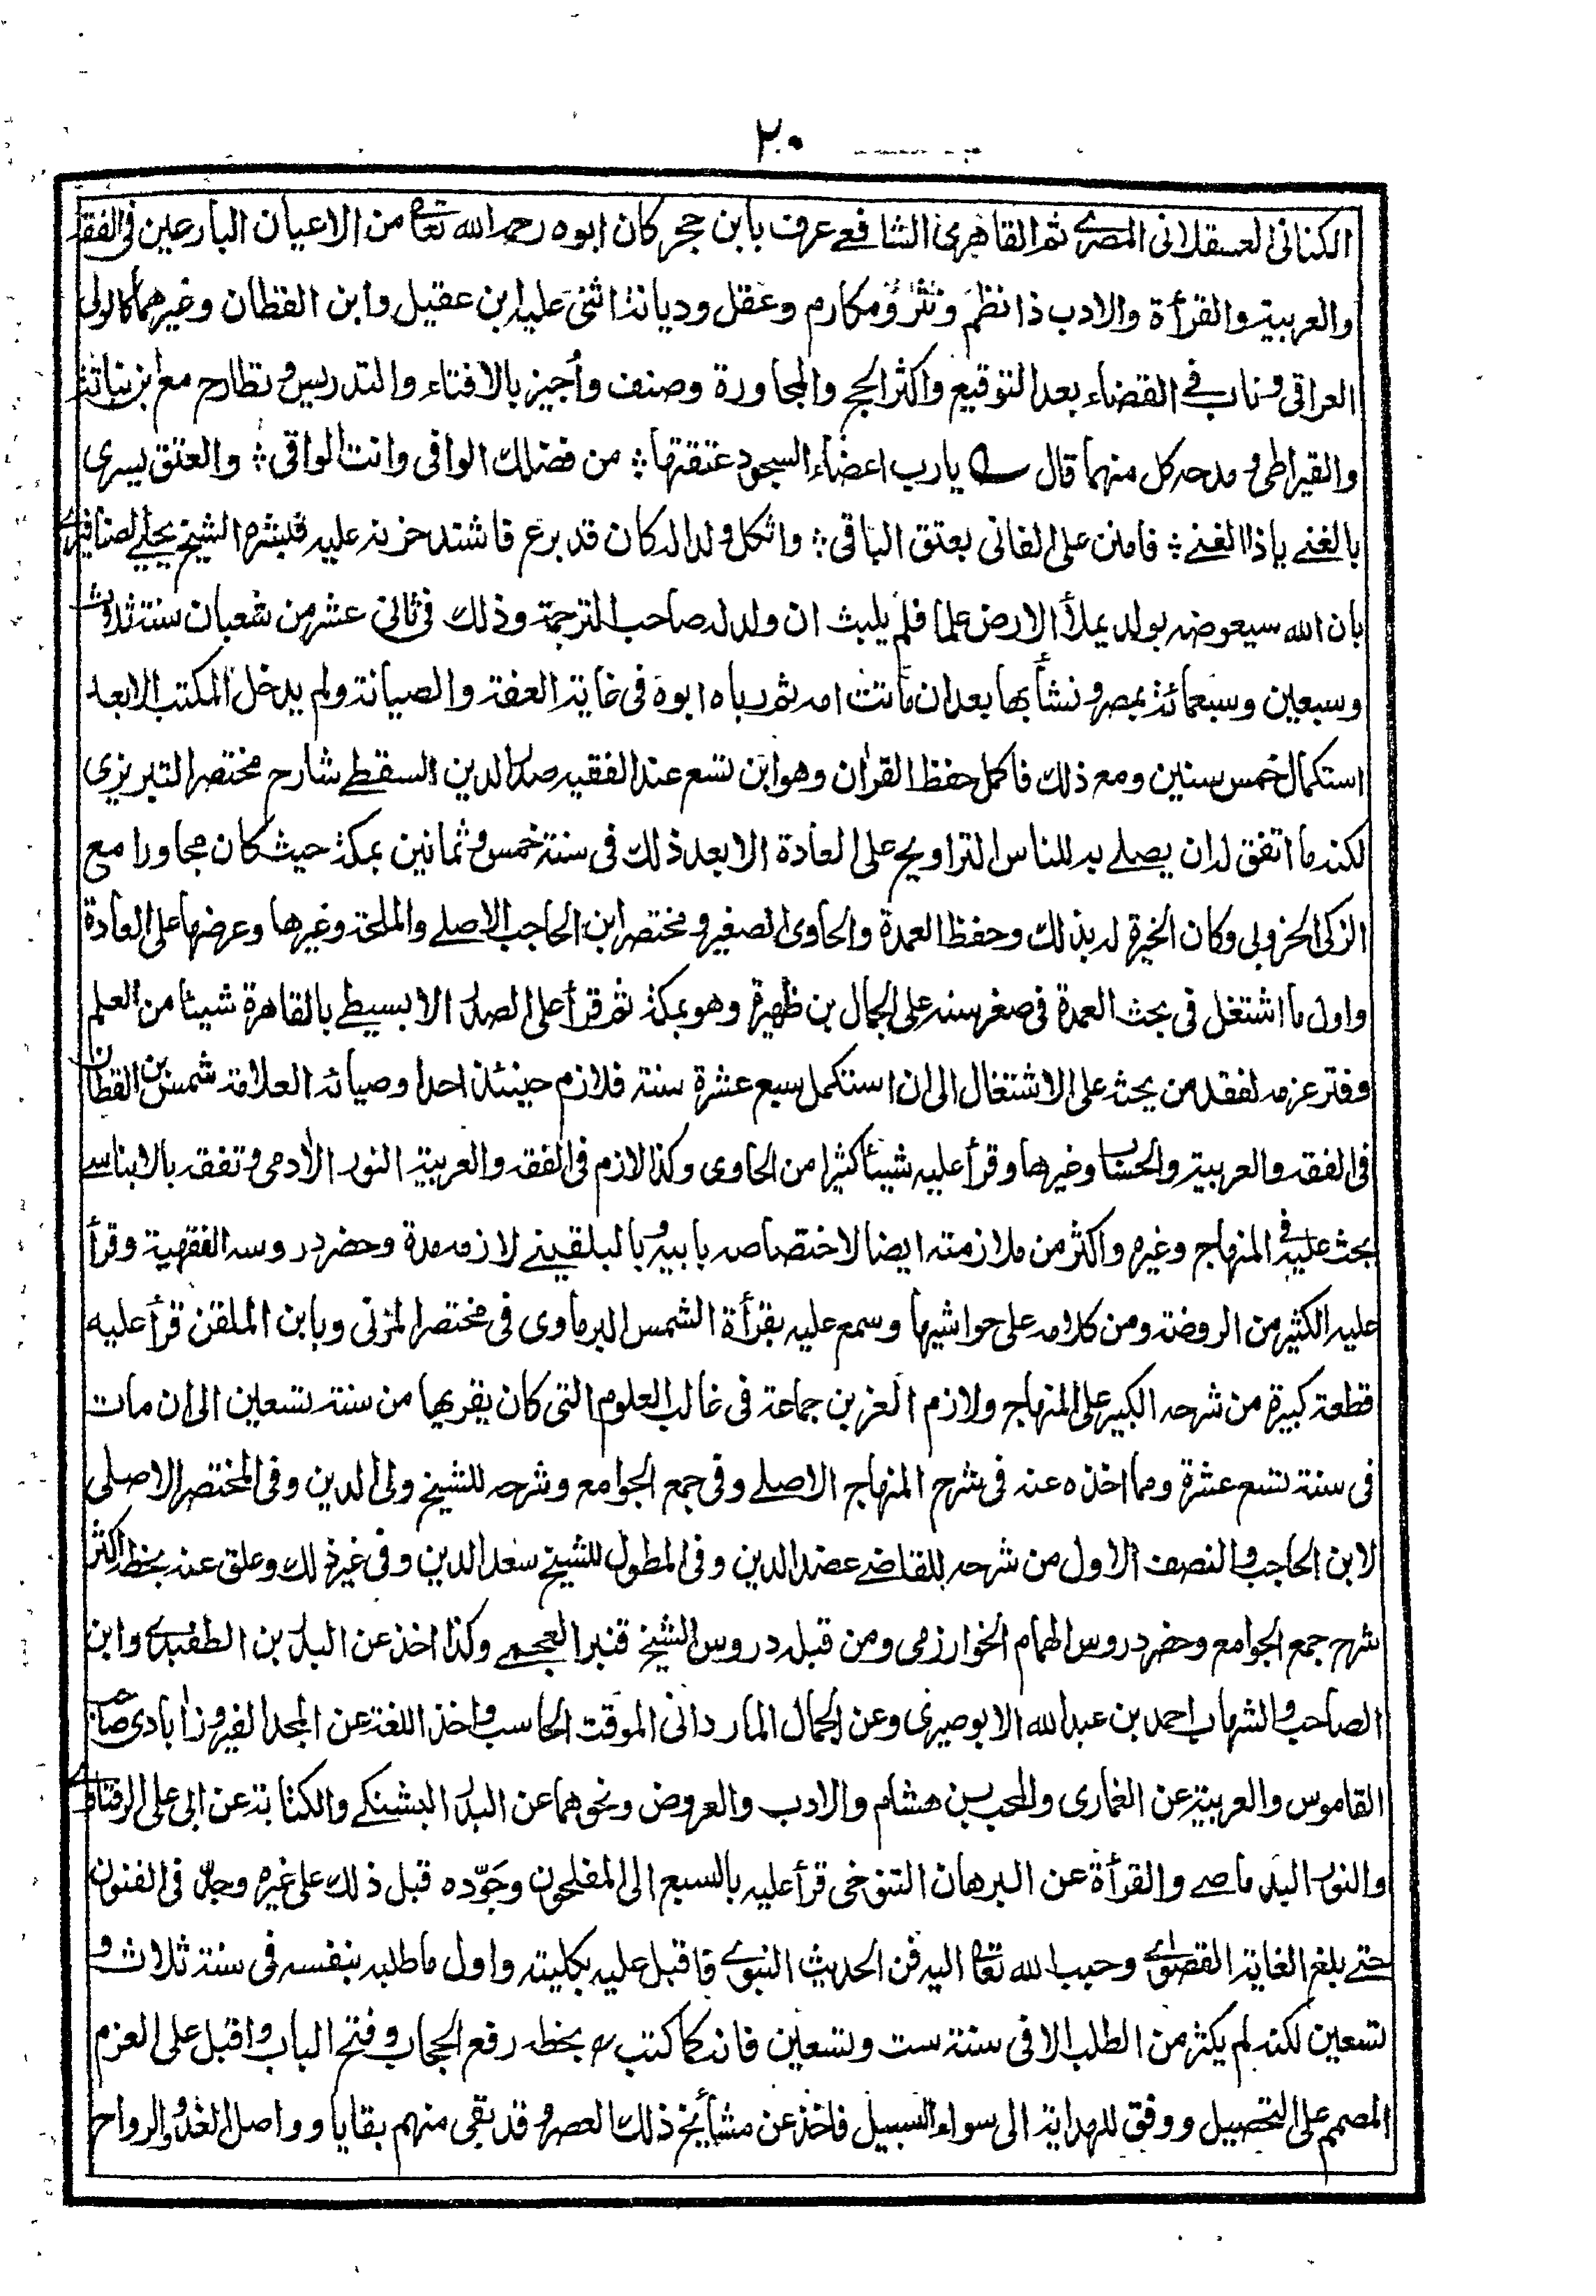 ٢٠
الكنانى العسقلانى المصرى ثم القاهرى الشافعے عرف بابن حجر كان ابوه رحمه الله تعالى من الاعيان البارعين فى الفقه
والعربية والقرأة والادب ذا نظم ونثر ومكارم وعقل وديانة اثنى عليه ابن عقيل وابن القطان وغيرهما كالولى
العراقى وناب فے القضاء بعد التوقيع واكثر الحج والمجاورة وصنف وأجيز بالافتاء والتدريس وتطارح مع ابن نباتة
والقيراطى ومدحه كل منهما قال يارب اعضاء السجود عتقتها ؞ من فضلك الوافى وانت الواقى ؞ والعتق يسرى
بالغنے ياذا الغنے ؞ فامنن على الفانى بعتق الباقى ؞ واثكل ولدا له كان قد برع فاشتد حزنه عليه فبشره الشيخ يحيے الصنافيرى
بان الله سيعوضه بولد يملأ الارض علما فلم يلبث ان ولد له صاحب الترجمة وذلك فى ثانى عشر من شعبان سنة ثلاث
وسبعين وسبعمائة بمصر ونشأ بها بعد ان ماتت امه ثم رباه ابوه فى غاية العفة والصيانة ولم يدخل المكتب الا بعد
استكمال خمس سنين ومع ذلك فاكمل حفظ القران وهو ابن تسع عند الفقيه صدر الدين السقطے شارح مختصر التبريزى
لكنه ما اتفق له ان يصلے به للناس التراويح على العادة الا بعد ذلك فى سنة خمس وثمانين بمكة حيث كان مجاورا مع
الزكى الخروبى وكان الخيرة له بذلك وحفظ العمدة والحاوى الصغير ومختصر ابن الحاجب الاصلے والملحة وغيرها وعرضها على العادة
واول ما اشتغل فى بحث العمدة فى صغر سنه على الجمال بن ظهيرة وهو بمكة ثم قرأ على الصدر الابسيطے بالقاهرة شيئا من العلم
وفتر عزمه لفقد من يحث على الاشتغال الى ان استكمل سبع عشرة سنة فلازم حينئذ احد اوصيائه العلامة شمس بن القطان
فى الفقه والعربية والحساب وغيرها وقرأ عليه شيئا كثيرا من الحاوى وكذا لازم فى الفقه والعربية النور الادمى وتفقه بالابناسے
بحث عليه فے المنهاج وغيره واكثر من ملازمته ايضا لاختصاصه بابيه وبالبلقينے لازمه مدة وحضر دروسه الفقهية وقرأ
عليه الكثير من الروضة ومن كلامه على حواشيها وسمع عليه بقرأة الشمس البرماوى فى مختصر المزنى وبابن الملقن قرأ عليه
قطعة كبيرة من شرحه الكبير على المنهاج ولازم العز بن جماعة فى غالب العلوم التى كان يقريها من سنة تسعين الى ان مات
فى سنة تسع عشرة ومما اخذه عنه فى شرح المنهاج الاصلے وفى جمع الجوامع وشرحه للشيخ ولى الدين وفى المختصر الاصلى
لابن الحاجب والنصف الاول من شرحه للقاضے عضد الدين وفى المطول للشيخ سعد الدين وفى غير ذلك وعلق عنه بخطه اكثر
شرح جمع الجوامع وحضر دروس الهمام الخوارزمى ومن قبله دروس الشيخ قنبر العجمے وكذا اخذ عن البدر بن الطنبدى وابن
الصاحب والشهاب احمد بن عبد الله الابوصيرى وعن الجمال الماردانى الموقت الحاسب واخذ اللغة عن المجد الفيروزابادى صاحب
القاموس والعربية عن الغمارى والمحب بن هشام والادب والعروض ونحوهما عن البدر البشتكے والكتابة عن ابى على الزفتاوے
والنور البدماصے والقرأة عن البرهان التنوخى قرأ عليه بالسبع الى المفلحون وجوّده قبل ذلك على غيره وجدّ فى الفنون
حتے بلغ الغاية القصوى وحبب الله تعالى اليه فن الحديث النبوى فاقبل عليه بكليته واول ما طلبه بنفسه فى سنة ثلاث و
تسعين لكنه لم يكثر من الطلب الا فى سنة ست وتسعين فانه كما كتب بخطه رفع الحجاب وفتح الباب واقبل على العزم
المصمم على التحصيل ووفق للهداية الى سواء السبيل فاخذ عن مشأيخ ذلك العصر وقد بقى منهم بقايا وواصل الغدو والرواح